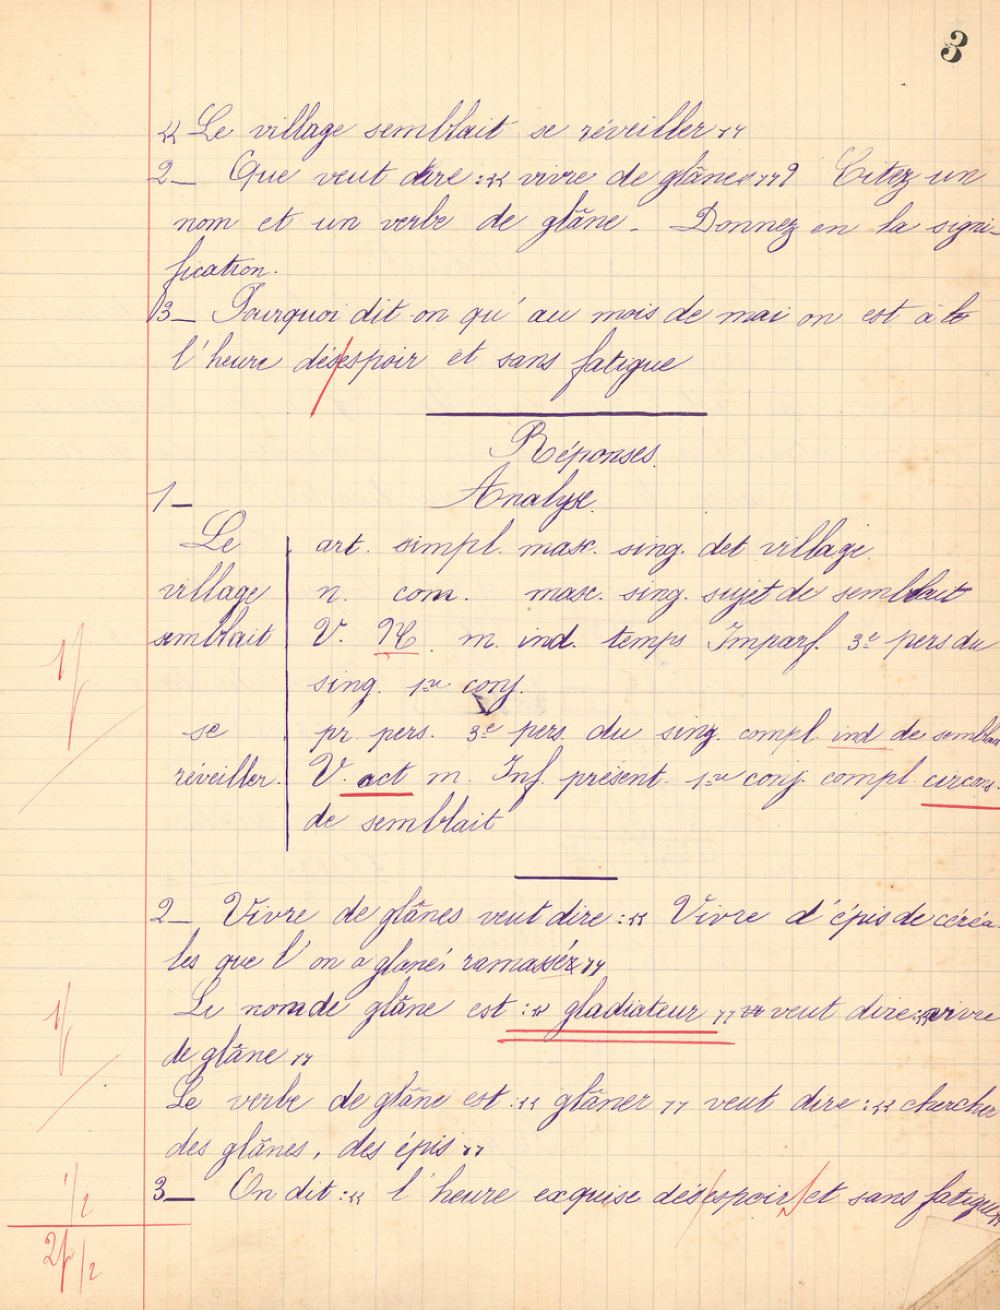 3
« Le village semblait se réveiller »
2_ Que veut dire : « vivre de glânes »? Citez un
nom et un verbe de glâne _ Donnez en la signi-
fication.
3_ Pourquoi dit-on qu'au mois de mai on est à le
l'heure désespoir et sans fatigue
Réponses.
1_ Analyse.
Le art. simpl. masc. sing. det village.
village n. com. masc. sing. sujet de semblait
semblait V. N. m. ind. temps Imparf. 3e pers du
sing. 1re conj.
se pr. pers. 3e pers. du sing. compl. ind de semblait
réveiller. V. act m. Inf. présent. 1re conj. compl. circons.
de semblait
2_ Vivre de glânes veut dire : « Vivre d'épis de céréa-
les que l'on a glané, ramassés »
Le nom de glâne est : « gladiateur » veut dire : « vivre
de glâne »
Le verbe de glâne est : « glâner » veut dire : « chercher
des glânes, des épis »
3_ On dit : « l'heure exquise désespoir et sans fatigue »
1f
1f
1/2
2f 1/2